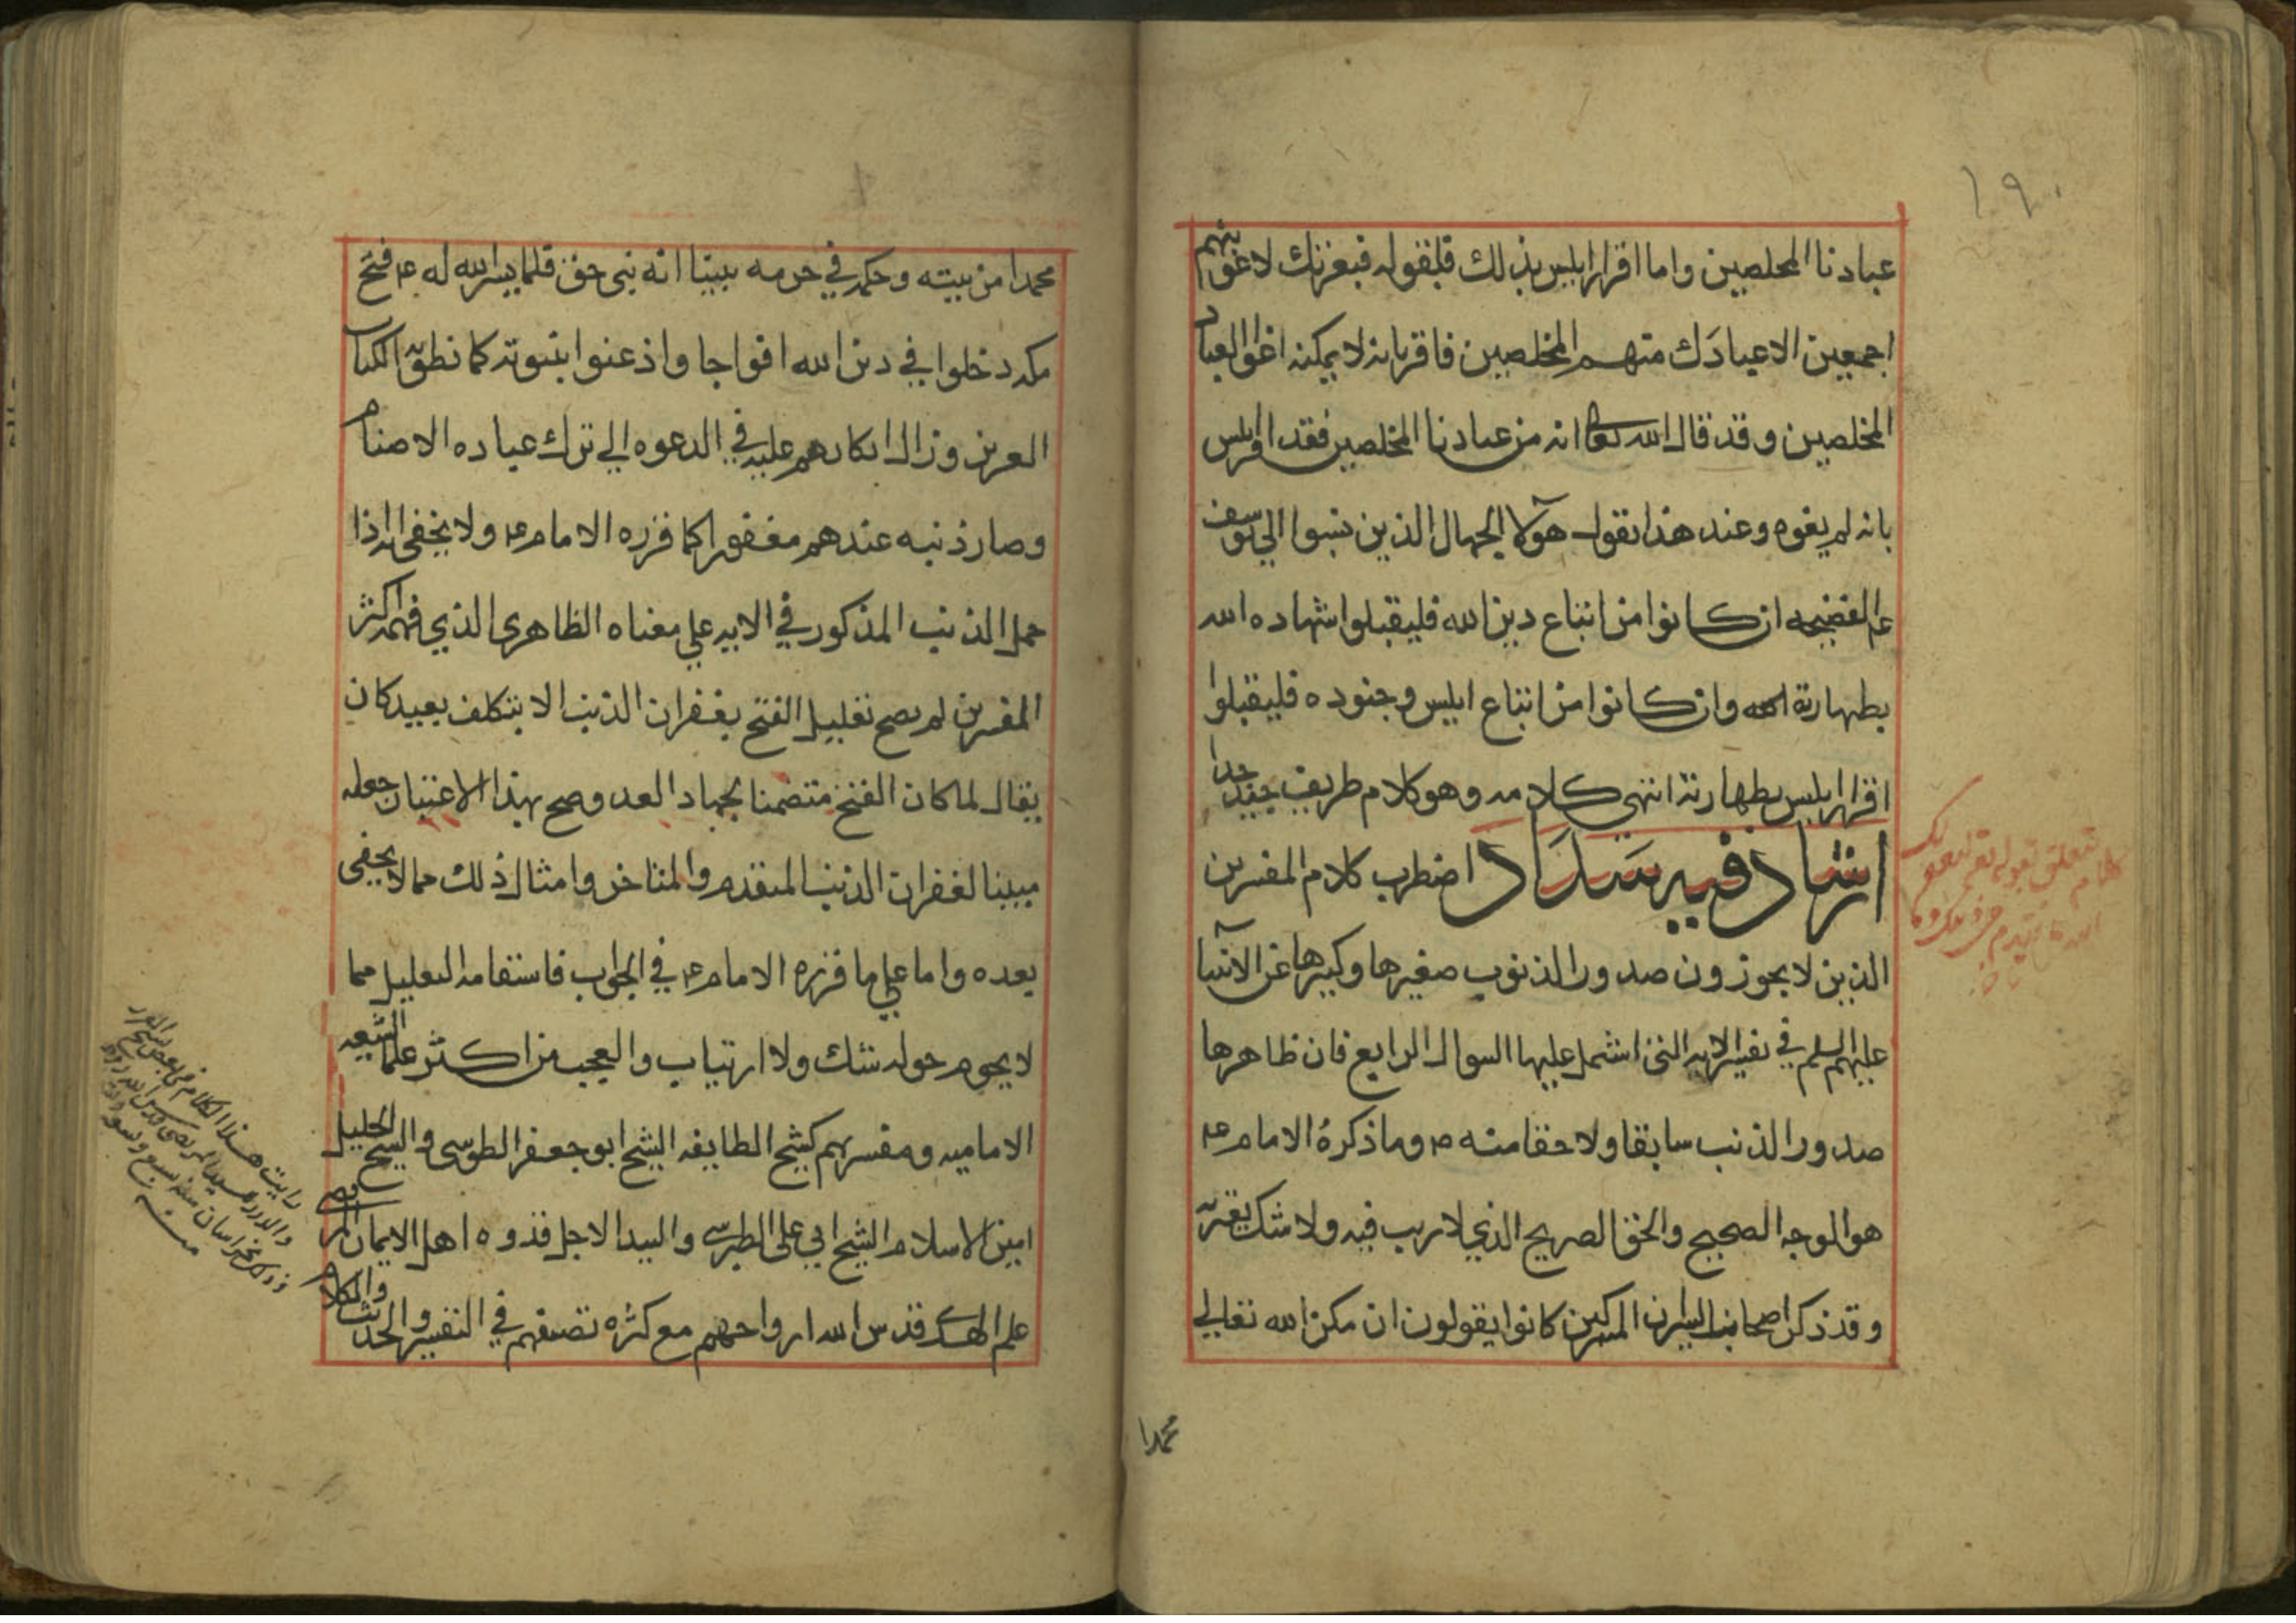 ١٩٠
عبادنا المخلصين واما اقرار ابليس بذلك فلقوله فبعزتك لاغوينهم
اجمعين الا عبادك منهم المخلصين فاقر بانه لا يمكنه اغوا العباد
المخلصين وقد قال الله تعالى انه من عبادنا المخلصين فقد اقر ابليس
بانه لم يغوه وعند هذا نقول هؤلا الجهال الذين نسبوا الى يوسف
عم الفضيحه ان كانوا من اتباع دين الله فليقبلوا شهاده الله
بطهارته وان كانوا من اتباع ابليس وجنوده فليقبلوا
اقرار ابليس بطهارته انتهى كلامه وهو كلام ظريف جيد جدا
ارشاد فيه سداد اضطرب كلام المفسرين
الذين لا يجوزون صدور الذنوب صغيرها وكبيرها عن الانبيا
عليهم السلم في تفسير الايه التى اشتمل عليها السوال الرابع فان ظاهرها
صدور الذنب سابقا ولاحقا منه ص وما ذكره الامام ع
هو الوجه الصحيح والحق الصريح الذي لا ريب فيه ولا شك يعتريه
وقد ذكر اصحاب السير ان المشركين كانوا يقولون ان مكن الله تعالى
محمدا
محمدا من بيته وحكمه في حرمه تبينا انه نبى حق فلما يسر الله له ع فتح
مكه دخلوا في دين الله افواجا واذعنوا بنبوته كما نطق به الكتاب
العزيز وزال انكارهم عليه في الدعوه الى ترك عباده الاصنام
وصار ذنبه عندهم مغفورا كما قرره الامام ع ولا يخفى انه اذا
حمل الذنب المذكور في الايه على معناه الظاهرى الذي فهمه اكثر
المفسرين لم يصح تعليل الفتح بغفران الذنب الا بتكلف بعيد كان
يقال لما كان الفتح متضمنا لجهاد العدو صح بهذا الاعتبار جعله
سببا لغفران الذنب المتقدم والمتاخر وامثال ذلك مما لا يخفى
بعده واما على ما قرره الامام ع في الجواب فاستقامه التعليل مما
لا يحوم حوله شك ولا ارتياب والعجب من اكثر علما الشيعه
الاماميه ومفسريهم كشيخ الطايفه الشيخ ابو جعفر الطوسى والشيخ الجليل
امين الاسلام الشيخ ابي على الطبرسى والسيد الاجل قدوه اهل الايمان المرتضى
علم الهدى قدس الله ارواحهم مع كثره تصنيفهم في التفسير والحديث والكلام
رايت هذا الكلام في بعض